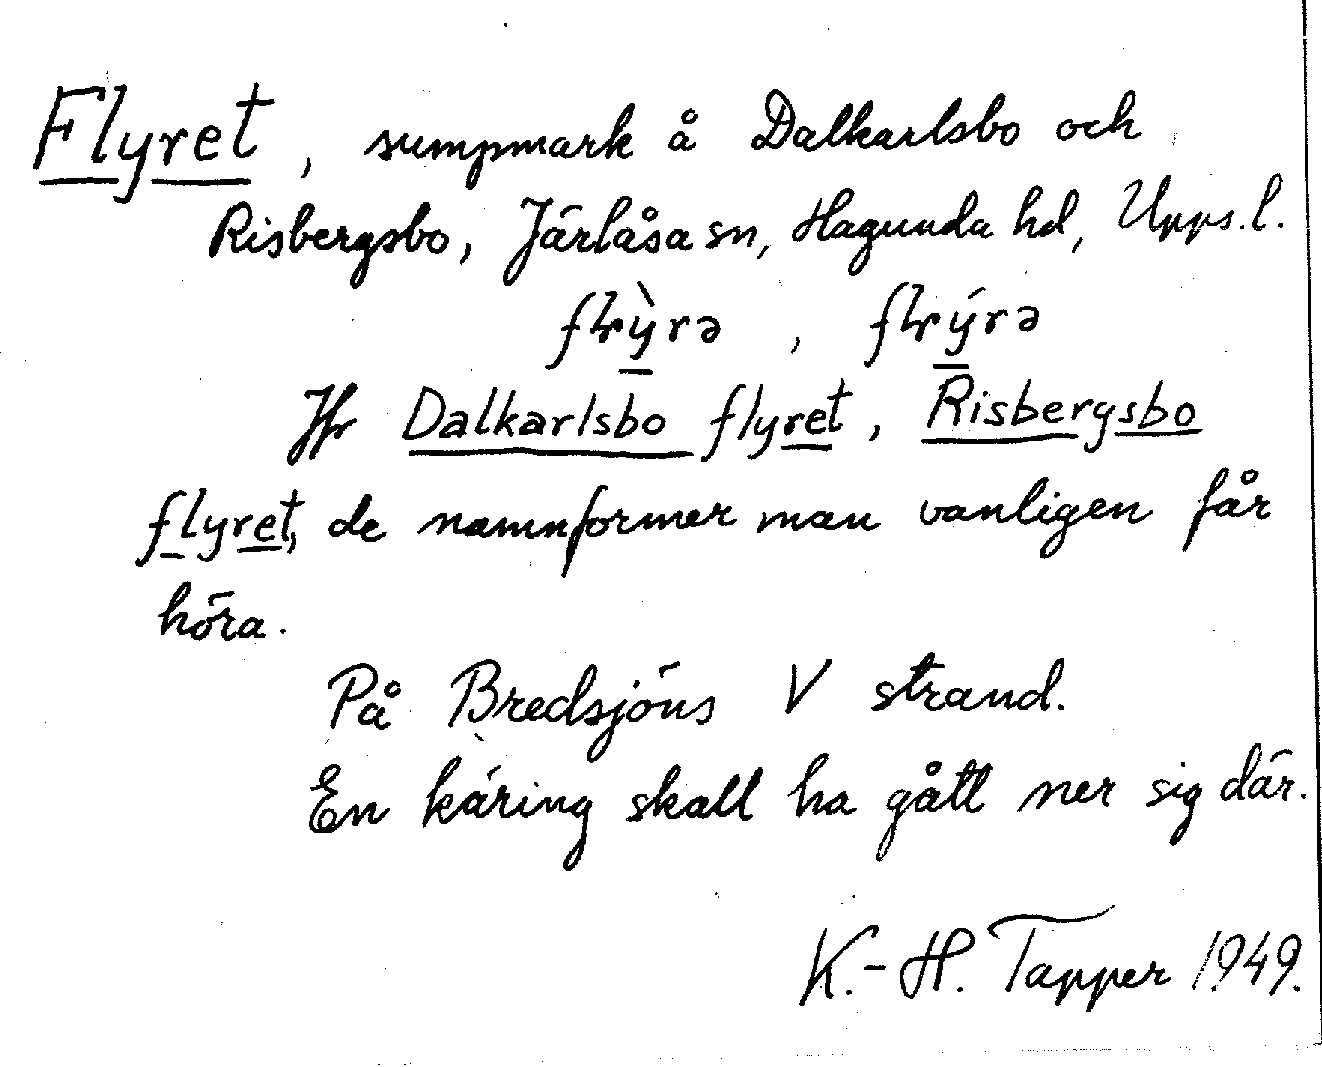 Flyret, sumpmark å Dalkarlsbo och
Risbergsbo, Järlåsa sn, Hagunda hd, Upps. l.
Jfr Dalkarlsbo flyret, Risbergsbo
flyret, de namnformer man vanligen får
höra.
På Bredsjöns V strand.
En käring skall ha gått ner sig där.
K.-H. Tapper 1949.